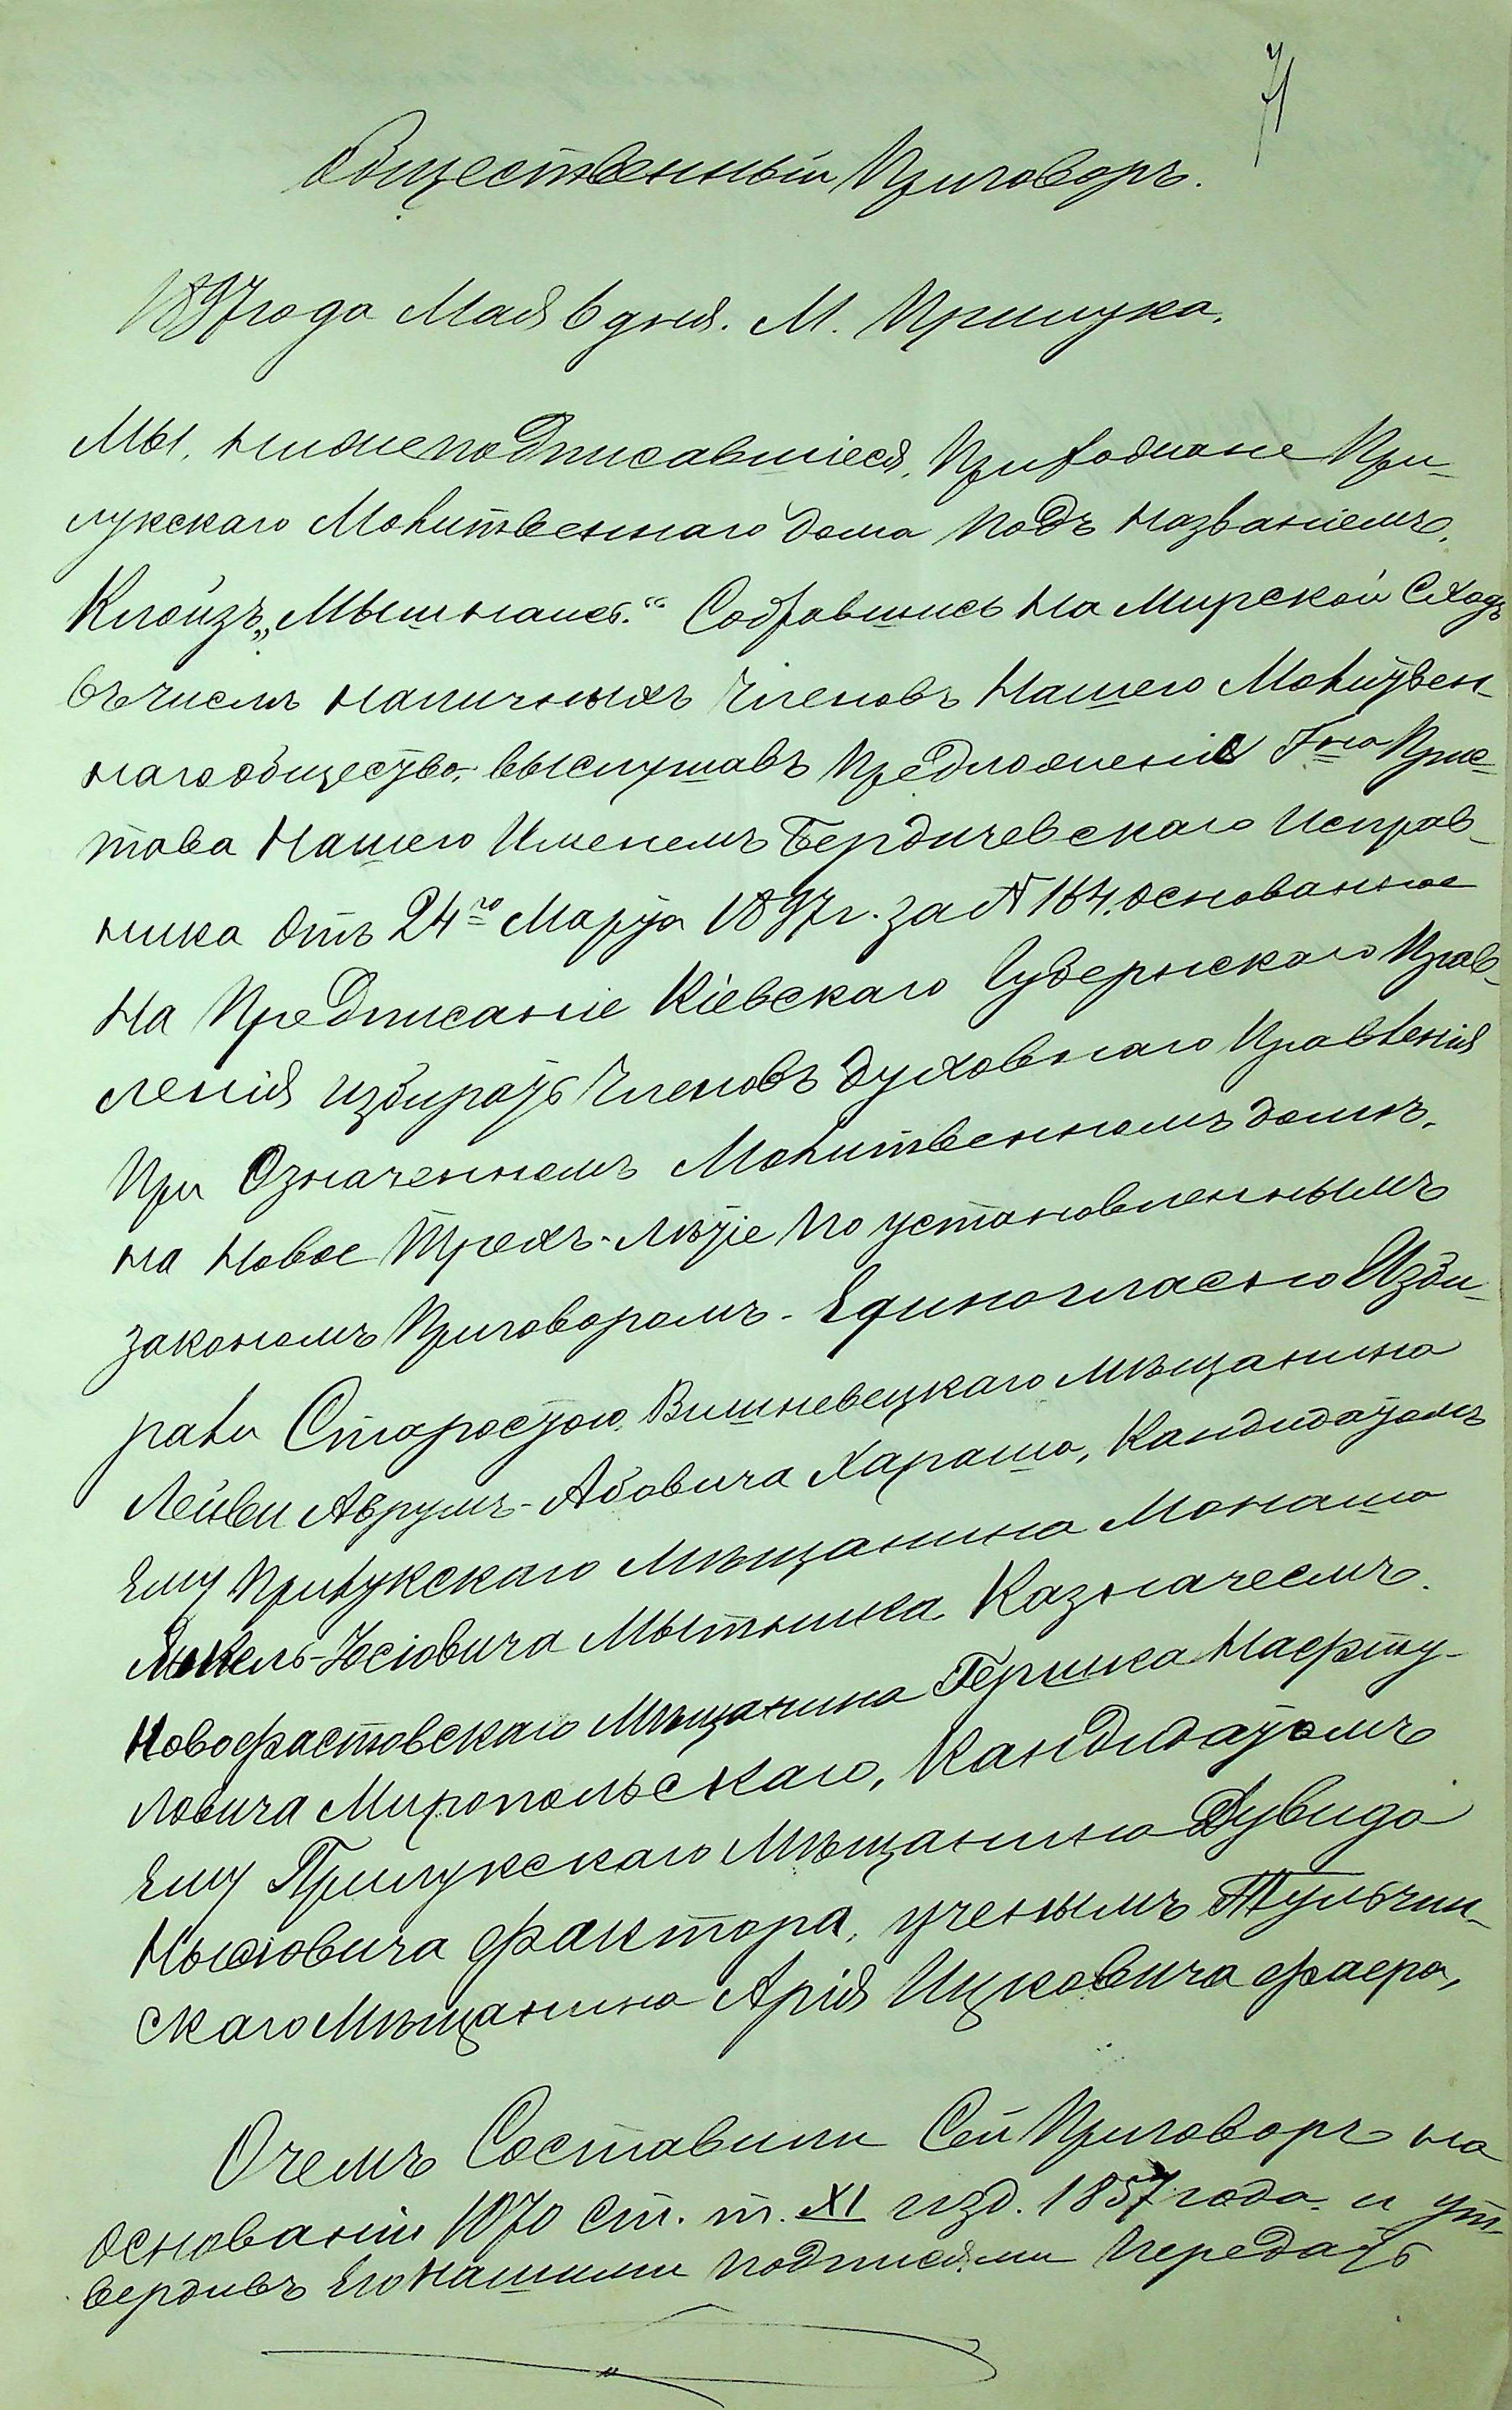 71
Общественный Приговоръ.
1897 года Мая 6 дня. М. Прилука.
Мы, нижеподписавшіеся, Прихожане При-
лукскаго Молитвеннаго дома подъ названіемъ,
Клойзъ „Мышнаиет.“ Собравшись на Мирской Сходъ
въ числѣ наличныхъ членовъ нашего Молитвен-
наго общества, выслушавъ предложенія Гна Прис-
тава Нашего Именемъ Бердичевскаго Исправ-
ника отъ 24го Марта 1897 г. за № 164. основанное
на Предписаніе Кіевскаго Губернскаго Прав-
ленія избирать членовъ духовнаго Правленія
при Означенномъ Молитвенномъ домѣ,
на новое Трехъ-лѣтіе по установленнымъ
закономъ Приговоромъ - Единогласно Изби-
рали Старостою, Вишневецкаго мѣщанина
Лейви Аврумъ-Абовича Хараша, Кандидатомъ
ему Прилукскаго Мѣщанина Монаша
Янкель-Іосіовича Мытника Казначеемъ.
Новофастовскаго Мѣщанина Гершка Нафту-
ловича Миропольскаго, Кандидатомъ
ему Прилукскаго Мѣщанина Дувида
фактора, ученымъ Тульчин-
скаго Мѣщанина Арія Ицковича фаера,
О чемъ Составили Сей Приговоръ на
основаніи 1070 ст. т. XI изд. 1857 года. и ут-
вердивъ его нашими подписями передать